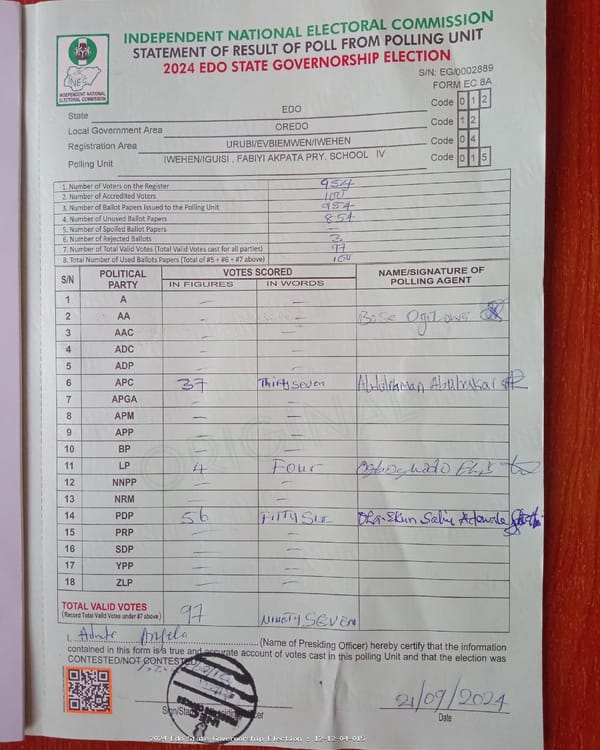 INDEPENDENT NATIONAL ELECTORAL COMMISSION
STATEMENT OF RESULT OF POLL FROM POLLING UNIT
2024 EDO STATE GOVERNORSHIP ELECTION
S/N: EG/0002889
FORM EC 8A
INEC
INDEPENDENT NATIONAL
ELECTORAL COMMISSION
State EDO Code 0 1 2
Local Government Area OREDO Code 1 2
Registration Area URUBI/EVBIEMWEN/IWEHEN Code 0 4
Polling Unit IWEHEN/IGUISI , FABIYI AKPATA PRY. SCHOOL IV Code 0 1 5
1. Number of Voters on the Register 954
2. Number of Accredited Voters
3. Number of Ballot Papers Issued to the Polling Unit 954
4. Number of Unused Ballot Papers 854
5. Number of Spoiled Ballot Papers —
6. Number of Rejected Ballots 3
7. Number of Total Valid Votes (Total Valid Votes cast for all parties) 97
8. Total Number of Used Ballots Papers (Total of #5 + #6 + #7 above)
S/N POLITICAL PARTY VOTES SCORED NAME/SIGNATURE OF POLLING AGENT
IN FIGURES IN WORDS
1 A — —
2 AA — — Bose
3 AAC — —
4 ADC — —
5 ADP — —
6 APC 37 Thirty seven Abdulrahman Abubakar
7 APGA — —
8 APM — —
9 APP — —
10 BP — —
11 LP 4 Four
12 NNPP — —
13 NRM — —
14 PDP 56 Fifty Six
15 PRP — —
16 SDP — —
17 YPP — —
18 ZLP — —
ORIGINAL
TOTAL VALID VOTES 97 NINETY SEVEN
(Record Total Valid Votes under #7 above)
I, Angela (Name of Presiding Officer) hereby certify that the information
contained in this form is a true and accurate account of votes cast in this polling Unit and that the election was
CONTESTED/NOT CONTESTED
21/09/2024
Date
2024 Edo State Governorship Election - 12-12-04-015